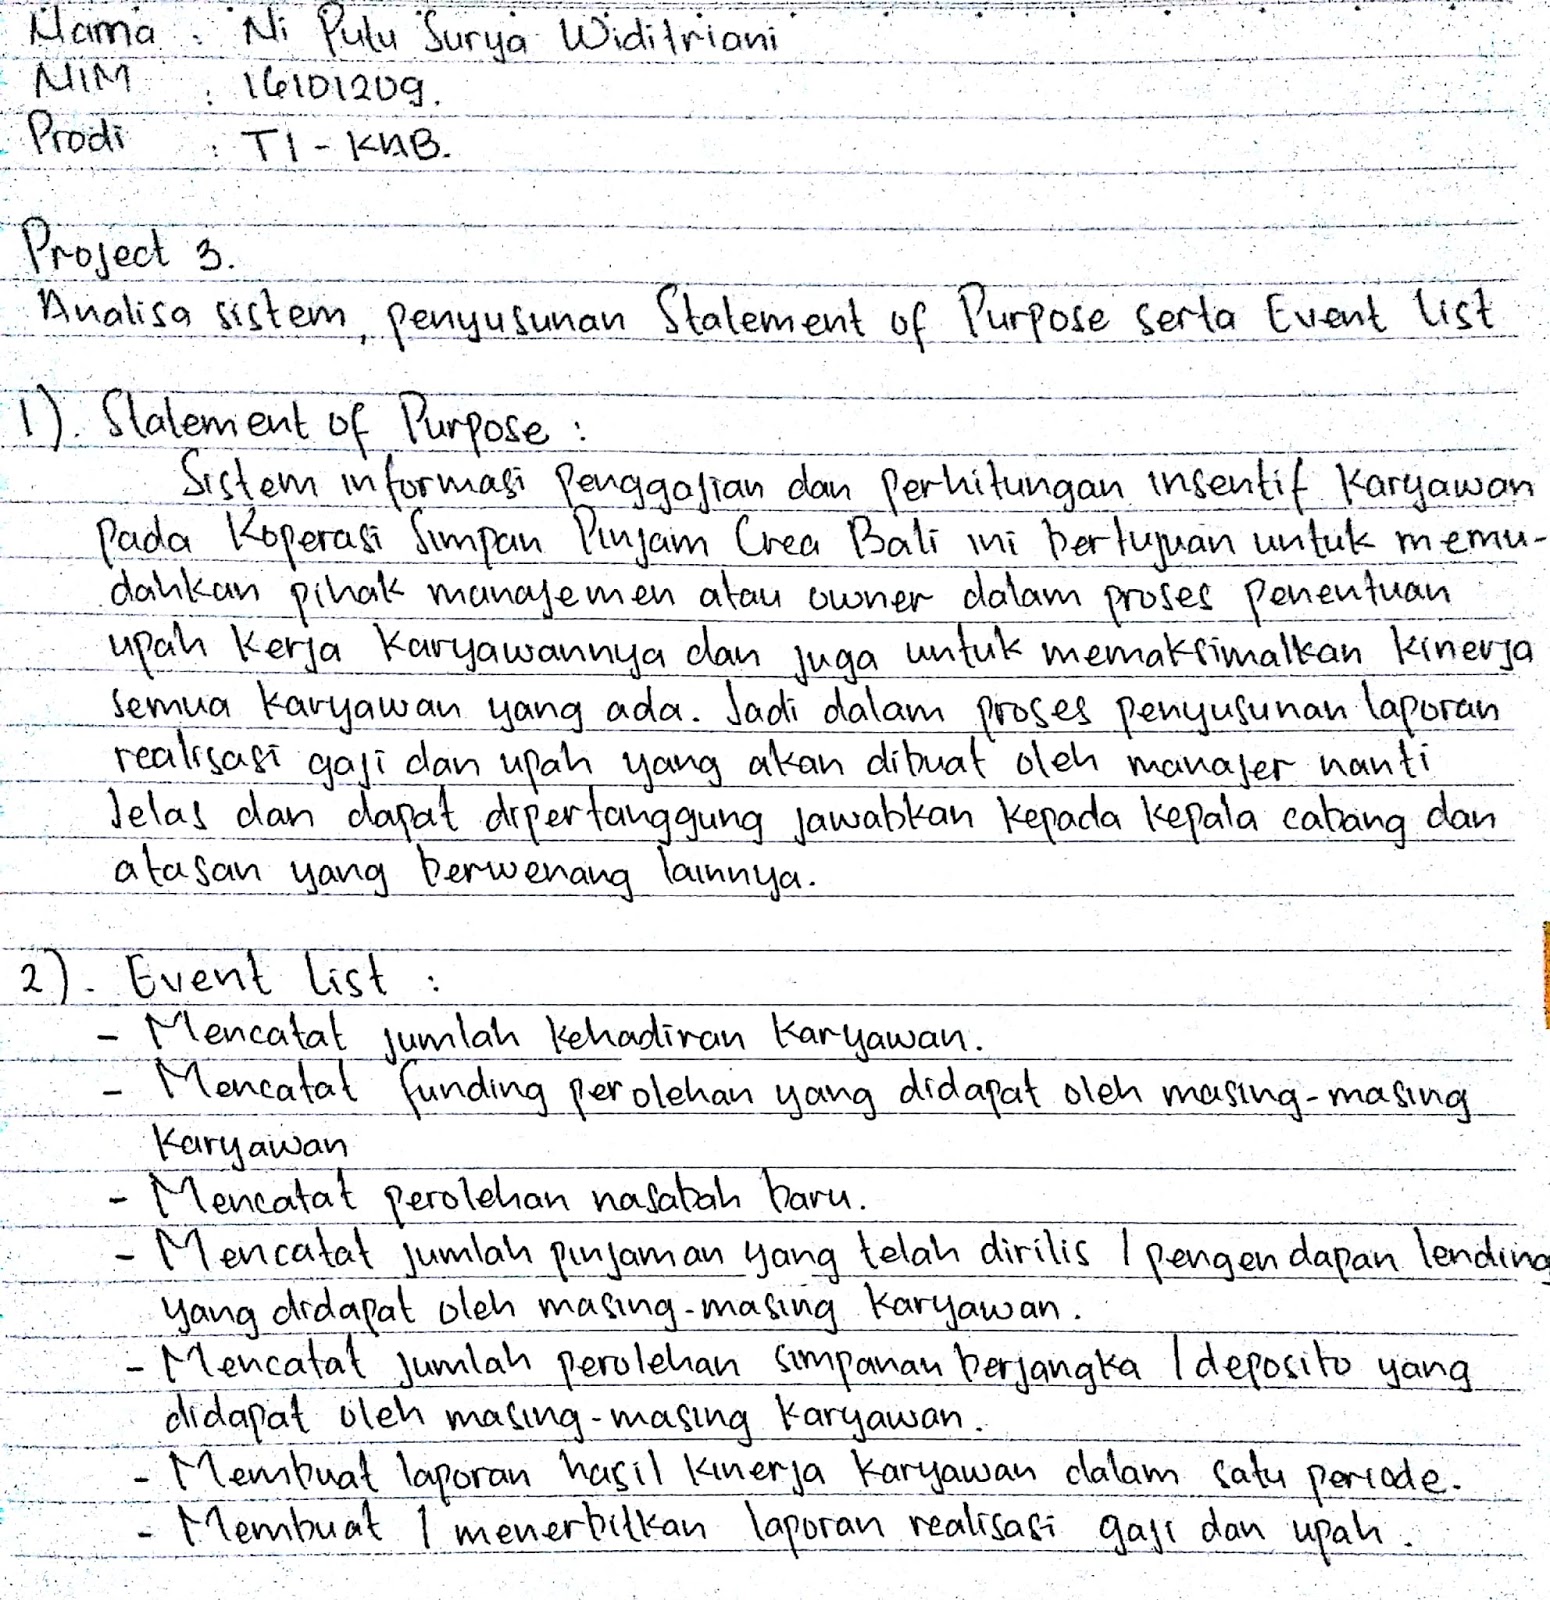 Nama : Ni Putu Surya Widitriani
NIM : 16101209.
Prodi : TI - KAB.
Project 3.
Analisa sistem, penyusunan Statement of Purpose serta Event list
1). Statement of Purpose :
Sistem informasi Penggajian dan Perhitungan insentif Karyawan
pada Koperasi Simpan Pinjam Crea Bali ini bertujuan untuk memu-
dahkan pihak manajemen atau owner dalam proses Penentuan
upah kerja karyawannya dan juga untuk memaksimalkan kinerja
semua karyawan yang ada. Jadi dalam proses penyusunan laporan
realisasi gaji dan upah yang akan dibuat oleh manajer nanti
Jelas dan dapat dipertanggung jawabkan kepada kepala cabang dan
atasan yang berwenang lainnya.
2). Event list :
- Mencatat jumlah kehadiran karyawan.
- Mencatat funding perolehan yang didapat oleh masing-masing
karyawan
- Mencatat perolehan nasabah baru.
- Mencatat jumlah pinjaman yang telah dirilis / pengendapan lending
yang didapat oleh masing-masing karyawan.
- Mencatat jumlah perolehan simpanan berjangka / deposito yang
didapat oleh masing-masing karyawan.
- Membuat laporan hasil kinerja karyawan dalam satu periode.
- Membuat / menerbitkan laporan realisasi gaji dan upah.